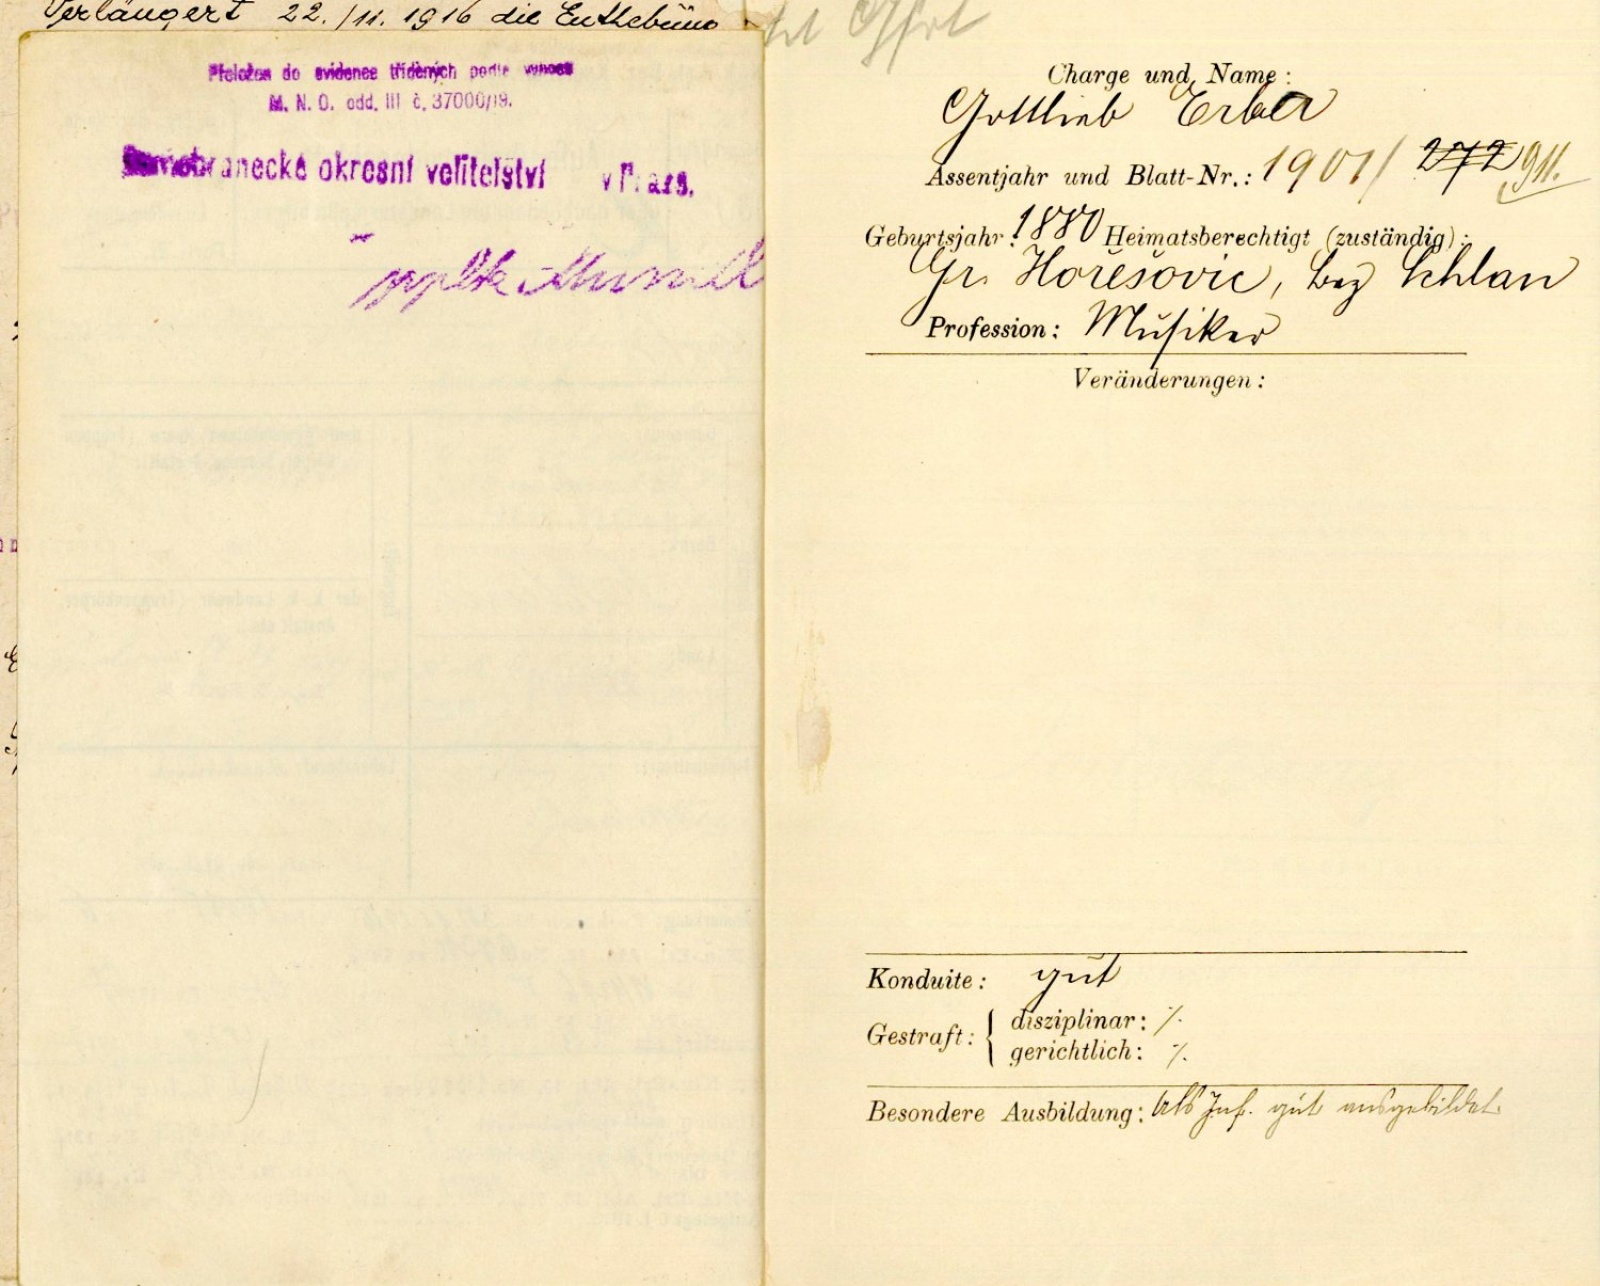 Verlängert 22./11. 1916 die Enthebung
Přeložen do evidence tříděných podle výnosu
M. N. O. odd. III č. 37000/19.
okresní velitelství v Praze.
Charge und Name:
Gottlieb Erber
Assentjahr und Blatt-Nr.: 1901/ 272 911.
Geburtsjahr: 1880 Heimatsberechtigt (zuständig):
Gr. Horešovic, Bez Schlan
Profession: Musiker
Veränderungen:
Konduite: gut
Gestraft: { disziplinar: ٪
gerichtlich: ٪
Besondere Ausbildung: Als Inf. gut ausgebildet.